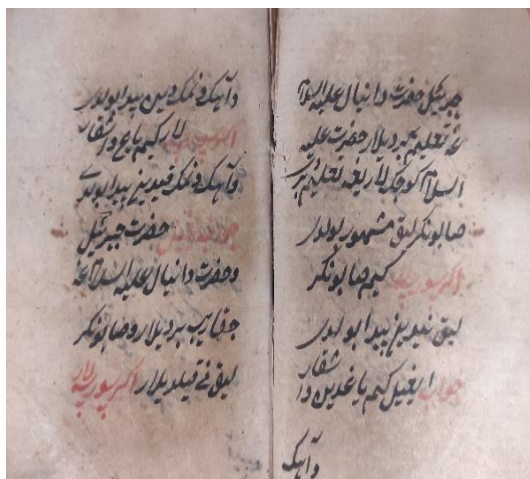 جبرئیل حضرت دانیال علیه السلام
غه تعلیم بردیلار حضرت علیه
السلام تعلیم بردی
صابونکرلیق مشهور بولدی
اکر سورسه لار کیم صابونکر
لیق نیدین پیدا بولدی
جواب ایغیل کیم یاغدین و اشقار
و آهک
و آهک و نمک دین پیدا بولدی
اکر سورسه لار کیم یاغ و اشقار
و آهک و نمک قیدین پیدا بولدی
جواب حضرت جبرئیل
و حضرت دانیال علیه السلام غه
جقاریب بردیلار و صابونکر
لیق نی قیلدیلار اکر سورسه لار